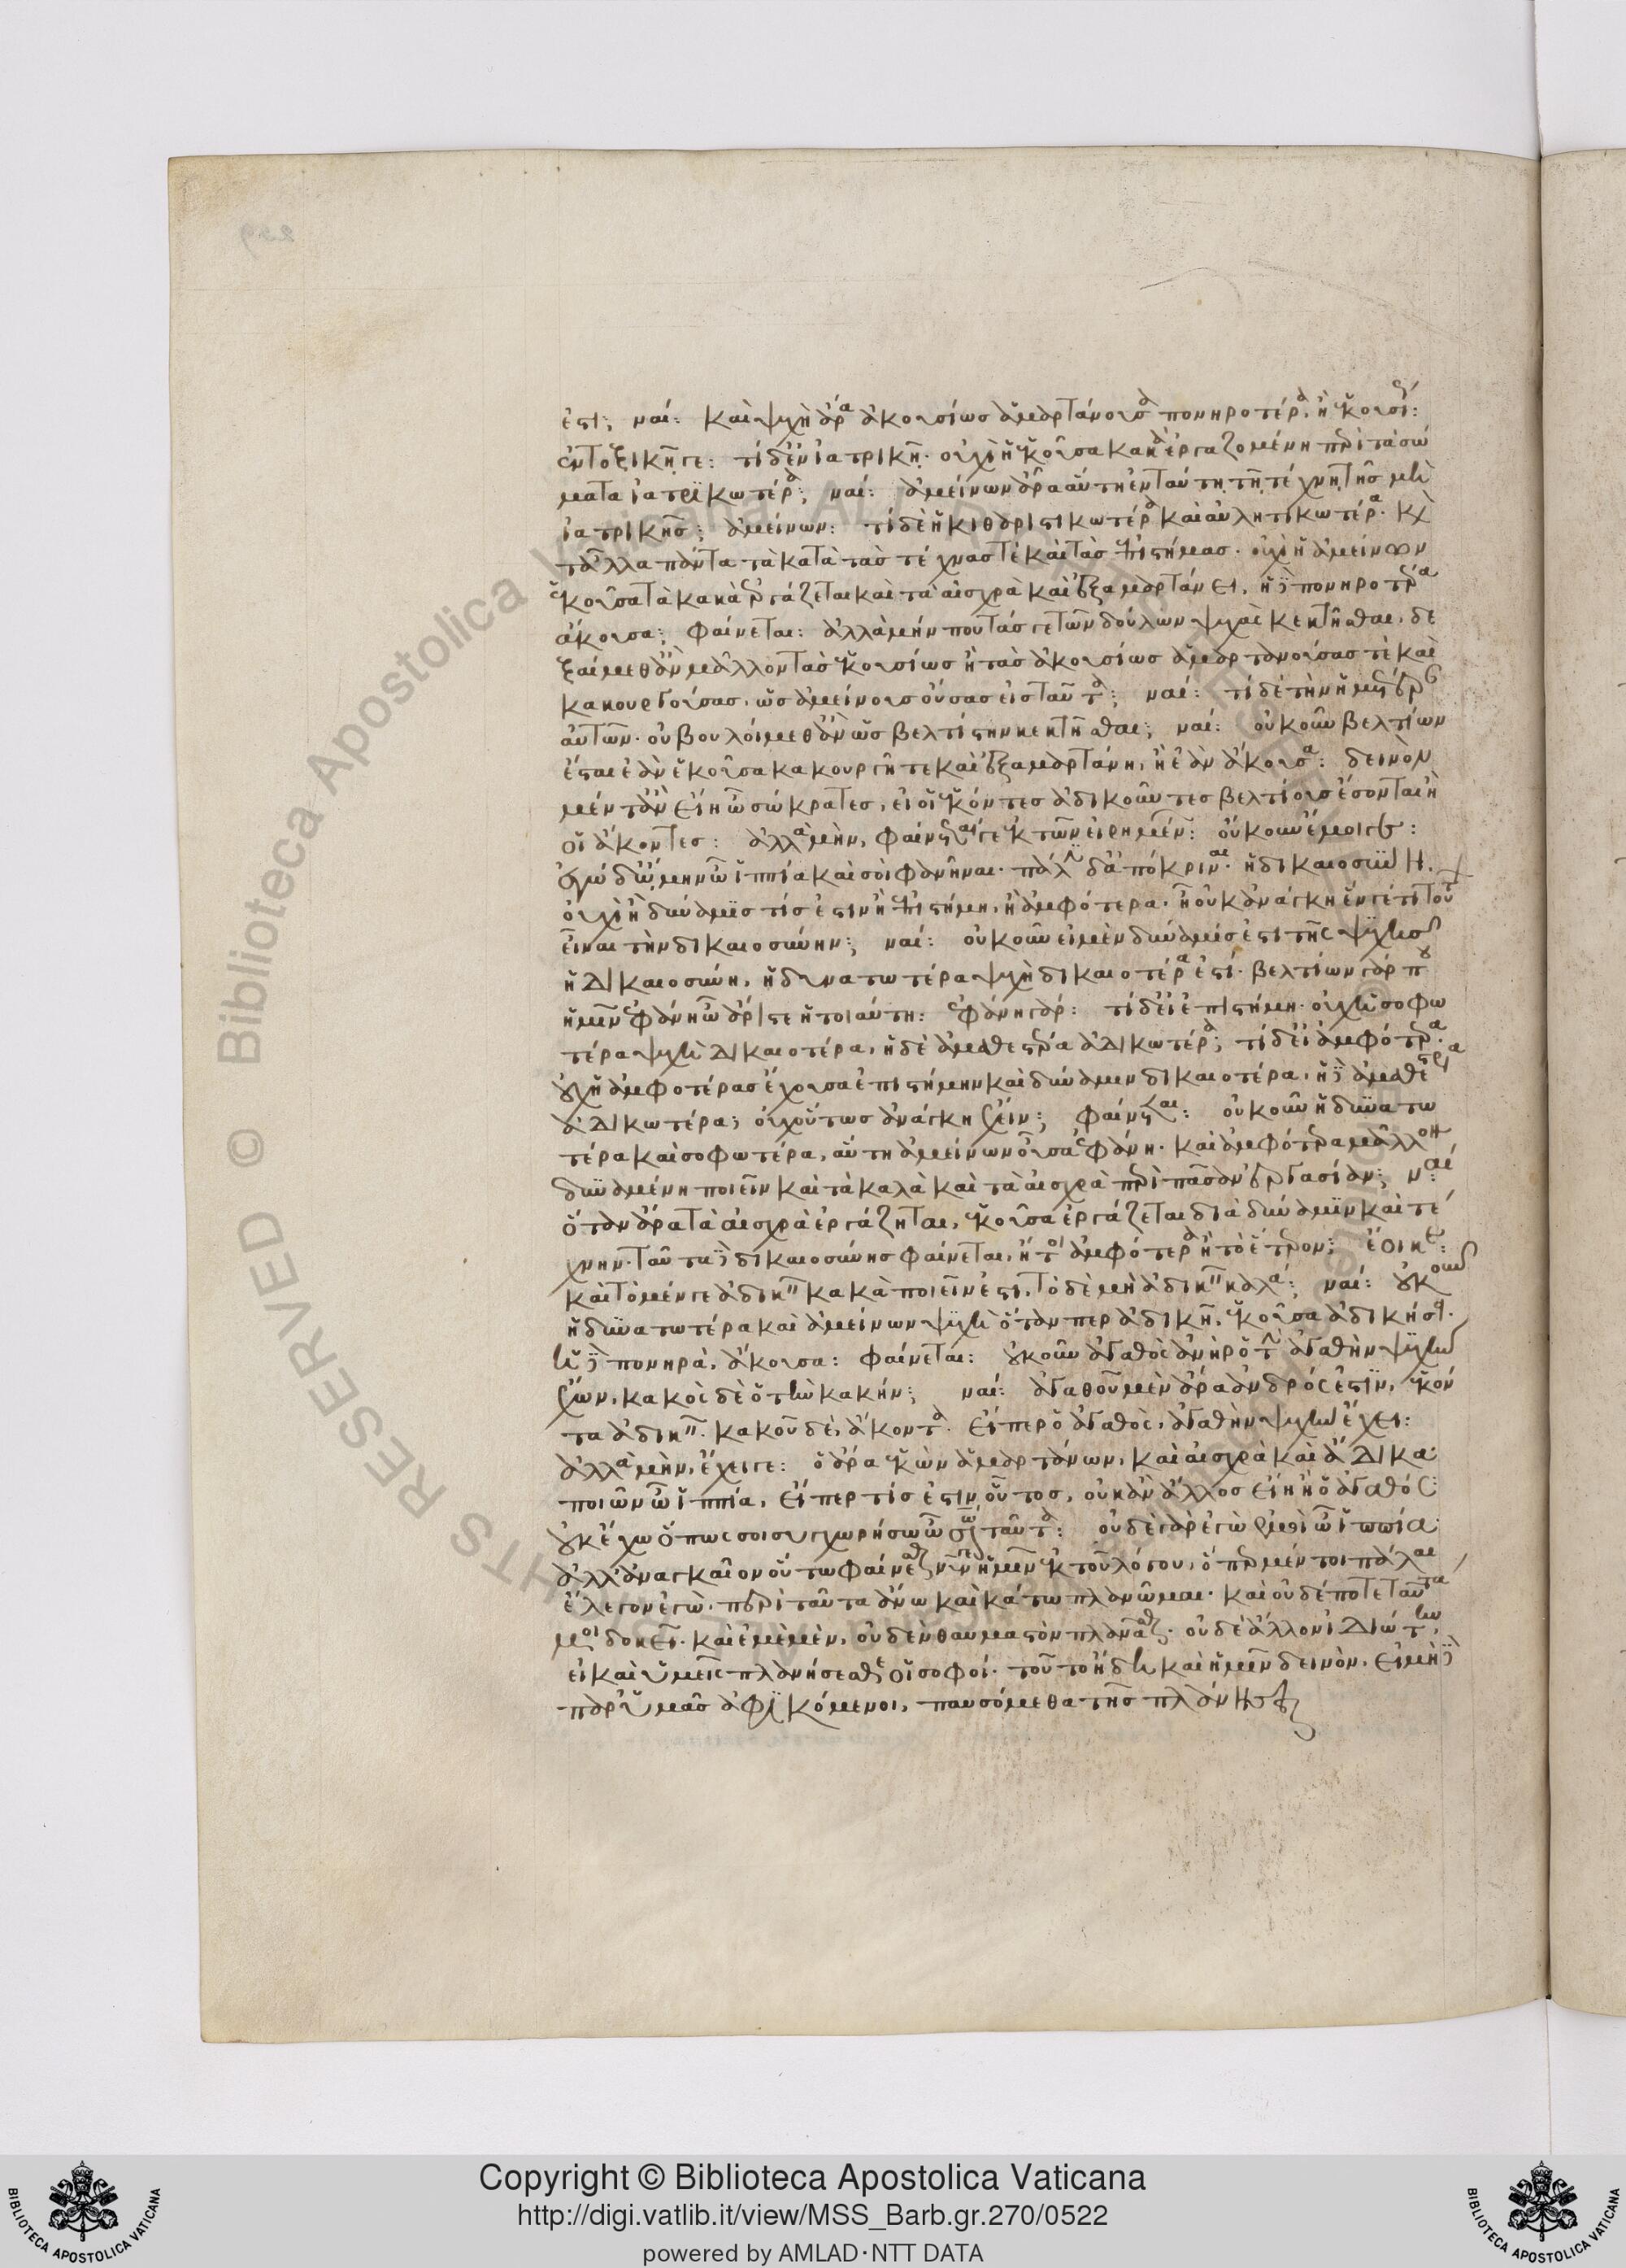 ἐστι; ναί: καὶ ψυχὴ ἄρα ἀκουσίως ἁμαρτάνουσα πονηροτέρα, ἢ ἑκουσί:
ἐν τοξικῇ γε: τί δ' ἐν ἰατρικῇ· οὐχὶ ἡ ἑκοῦσα κακὰ ἐργαζομένη περὶ τὰ σώ
ματα ἰατρικωτέρα; ναί: ἀμείνων ἄρα αὕτη ἐν ταύτῃ τῇ τέχνῃ τῆς μὴ
ἰατρικῆς; ἀμείνων: τί δὲ ἡ κιθαριστικωτέρα καὶ αὐλητικωτέρα· καὶ
τἆλλα πάντα τὰ κατὰ τὰς τέχνας τὲ καὶ τὰς ἐπιστήμας· οὐχὶ ἡ ἀμείνων
ἑκοῦσα τὰ κακὰ ἐργάζεται καὶ τὰ αἰσχρὰ καὶ ἐξαμαρτάνει, ἡ δὲ πονηροτέρα
ἄκουσα; φαίνεται: ἀλλὰ μήν που τάς γε τῶν δούλων ψυχὰς κεκτῆσθαι, δε
ξαίμεθ' ἂν μᾶλλον τὰς ἑκουσίως ἢ τὰς ἀκουσίως ἁμαρτανούσας τὲ καὶ
κακουργούσας, ὡς ἀμείνους οὔσας εἰς ταῦτα; ναί: τί δὲ τὴν ἡμετέραν
αὐτῶν· οὐ βουλοίμεθ' ἂν ὡς βελτίστην κεκτῆσθαι; ναί: οὐκοῦν βελτίων
ἔσται ἐὰν ἑκοῦσα κακουργῇ τε καὶ ἐξαμαρτάνῃ, ἢ ἐὰν ἄκουσα: δεινὸν
μέν τἂν εἴη ὦ σώκρατες, εἰ οἱ ἑκόντες ἀδικοῦντες βελτίους ἔσονται ἢ
οἱ ἄκοντες: ἀλλὰ μὴν, φαίνονταί γε ἐκ τῶν εἰρημένων: οὔκουν ἔμοιγε:
ἐγὼ δ' ᾤμην ὦ ἱππία καὶ σοὶ φανῆναι· πάλιν δ' ἀπόκριναι· ἡ δικαιοσύνη
οὐχὶ ἢ δύναμις τίς ἐστιν ἢ ἐπιστήμη, ἢ ἀμφότερα· ἢ οὐκ ἀνάγκη ἕν γέ τι τού
εἶναι τὴν δικαιοσύνην; ναί: οὐκοῦν εἰ μὲν δύναμίς ἐστι τῆς ψυχῆς
ἡ δικαιοσύνη, ἡ δυνατωτέρα ψυχὴ δικαιοτέρα ἐστί· βελτίων γάρ που
ἡμῖν ἐφάνη ὦ ἄριστε ἡ τοιαύτη: ἐφάνη γάρ: τί δ' εἰ ἐπιστήμη· οὐχ ἡ σοφω
τέρα ψυχὴ δικαιοτέρα, ἡ δὲ ἀμαθεστέρα ἀδικωτέρα; τί δ' εἰ ἀμφότερα·
οὐχ ἡ ἀμφοτέρας ἔχουσα ἐπιστήμην καὶ δύναμιν δικαιοτέρα, ἡ δὲ ἀμαθεστέρα
ἀδικωτέρα; οὐχ οὕτως ἀνάγκη ἔχειν; φαίνεται: οὐκοῦν ἡ δυνατω
τέρα καὶ σοφωτέρα, αὕτη ἀμείνων οὖσα ἐφάνη· καὶ ἀμφότερα μᾶλλον
δυναμένη ποιεῖν καὶ τὰ καλὰ καὶ τὰ αἰσχρὰ περὶ πᾶσαν ἐργασίαν; ναί
ὅταν ἄρα τὰ αἰσχρὰ ἐργάζηται, ἑκοῦσα ἐργάζεται διὰ δύναμιν καὶ τέ
χνην· ταῦτα δὲ δικαιοσύνης φαίνεται, ἤτοι ἀμφότερα ἢ τὸ ἕτερον; ἔοικε:
καὶ τὸ μέν γε ἀδικεῖν κακὰ ποιεῖν ἐστι, τὸ δὲ μὴ ἀδικεῖν καλά; ναί: οὐκοῦν
ἡ δυνατωτέρα καὶ ἀμείνων ψυχὴ ὅταν περ ἀδικῇ, ἑκοῦσα ἀδικήσει·
ἡ δὲ πονηρὰ, ἄκουσα: φαίνεται: οὐκοῦν ἀγαθὸς ἀνὴρ ὁ τὴν ἀγαθὴν ψυχὴν
ἔχων, κακὸς δὲ ὁ τὴν κακήν; ναί: ἀγαθοῦ μὲν ἄρα ἀνδρός ἐστιν, ἑκόν
τα ἀδικεῖν· κακοῦ δὲ, ἄκοντα· εἴπερ ὁ ἀγαθὸς, ἀγαθὴν ψυχὴν ἔχει:
ἀλλὰ μὴν, ἔχει γε: ὁ ἄρα ἑκὼν ἁμαρτάνων, καὶ αἰσχρὰ καὶ ἄδικα
ποιῶν ὦ ἱππία, εἴπερ τίς ἐστιν οὗτος, οὐκ ἂν ἄλλος εἴη ἢ ὁ ἀγαθός:
οὐκ ἔχω ὅπως σοι συγχωρήσω ὦ σώκρατες ταῦτα: οὐδὲ γὰρ ἐγὼ ἐμοὶ ὦ ἱππία·
ἀλλ' ἀναγκαῖον οὕτω φαίνεσθαι νῦν γε ἡμῖν ἐκ τοῦ λόγου, ὅπερ μέντοι πάλαι
ἔλεγον ἐγὼ· περὶ ταῦτα ἄνω καὶ κάτω πλανῶμαι· καὶ οὐδέποτε ταῦτα
μοι δοκεῖ· καὶ ἐμὲ μὲν, οὐδὲν θαυμαστὸν πλανᾶσθαι· οὐδὲ ἄλλον ἰδιώτην,
εἰ καὶ ὑμεῖς πλανήσεσθε οἱ σοφοί· τοῦτο ἤδη καὶ ἡμῖν δεινὸν· εἰ μηδὲ
παρ' ὑμᾶς ἀφικόμενοι, παυσόμεθα τῆς πλάνης
Copyright © Biblioteca Apostolica Vaticana
http://digi.vatlib.it/view/MSS_Barb.gr.270/0522
powered by AMLAD·NTT DATA